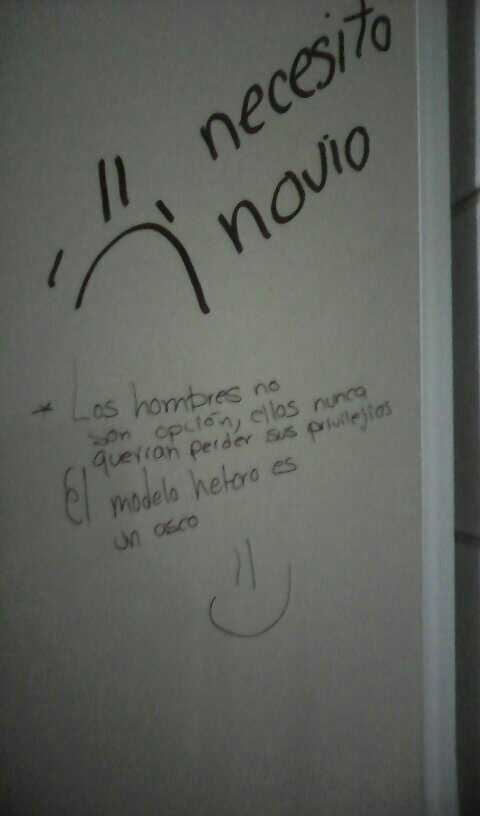 necesito
novio
* Los hombres no
son opción, ellos nunca
querian perder sus privilejios
El modelo hetero es
un asco